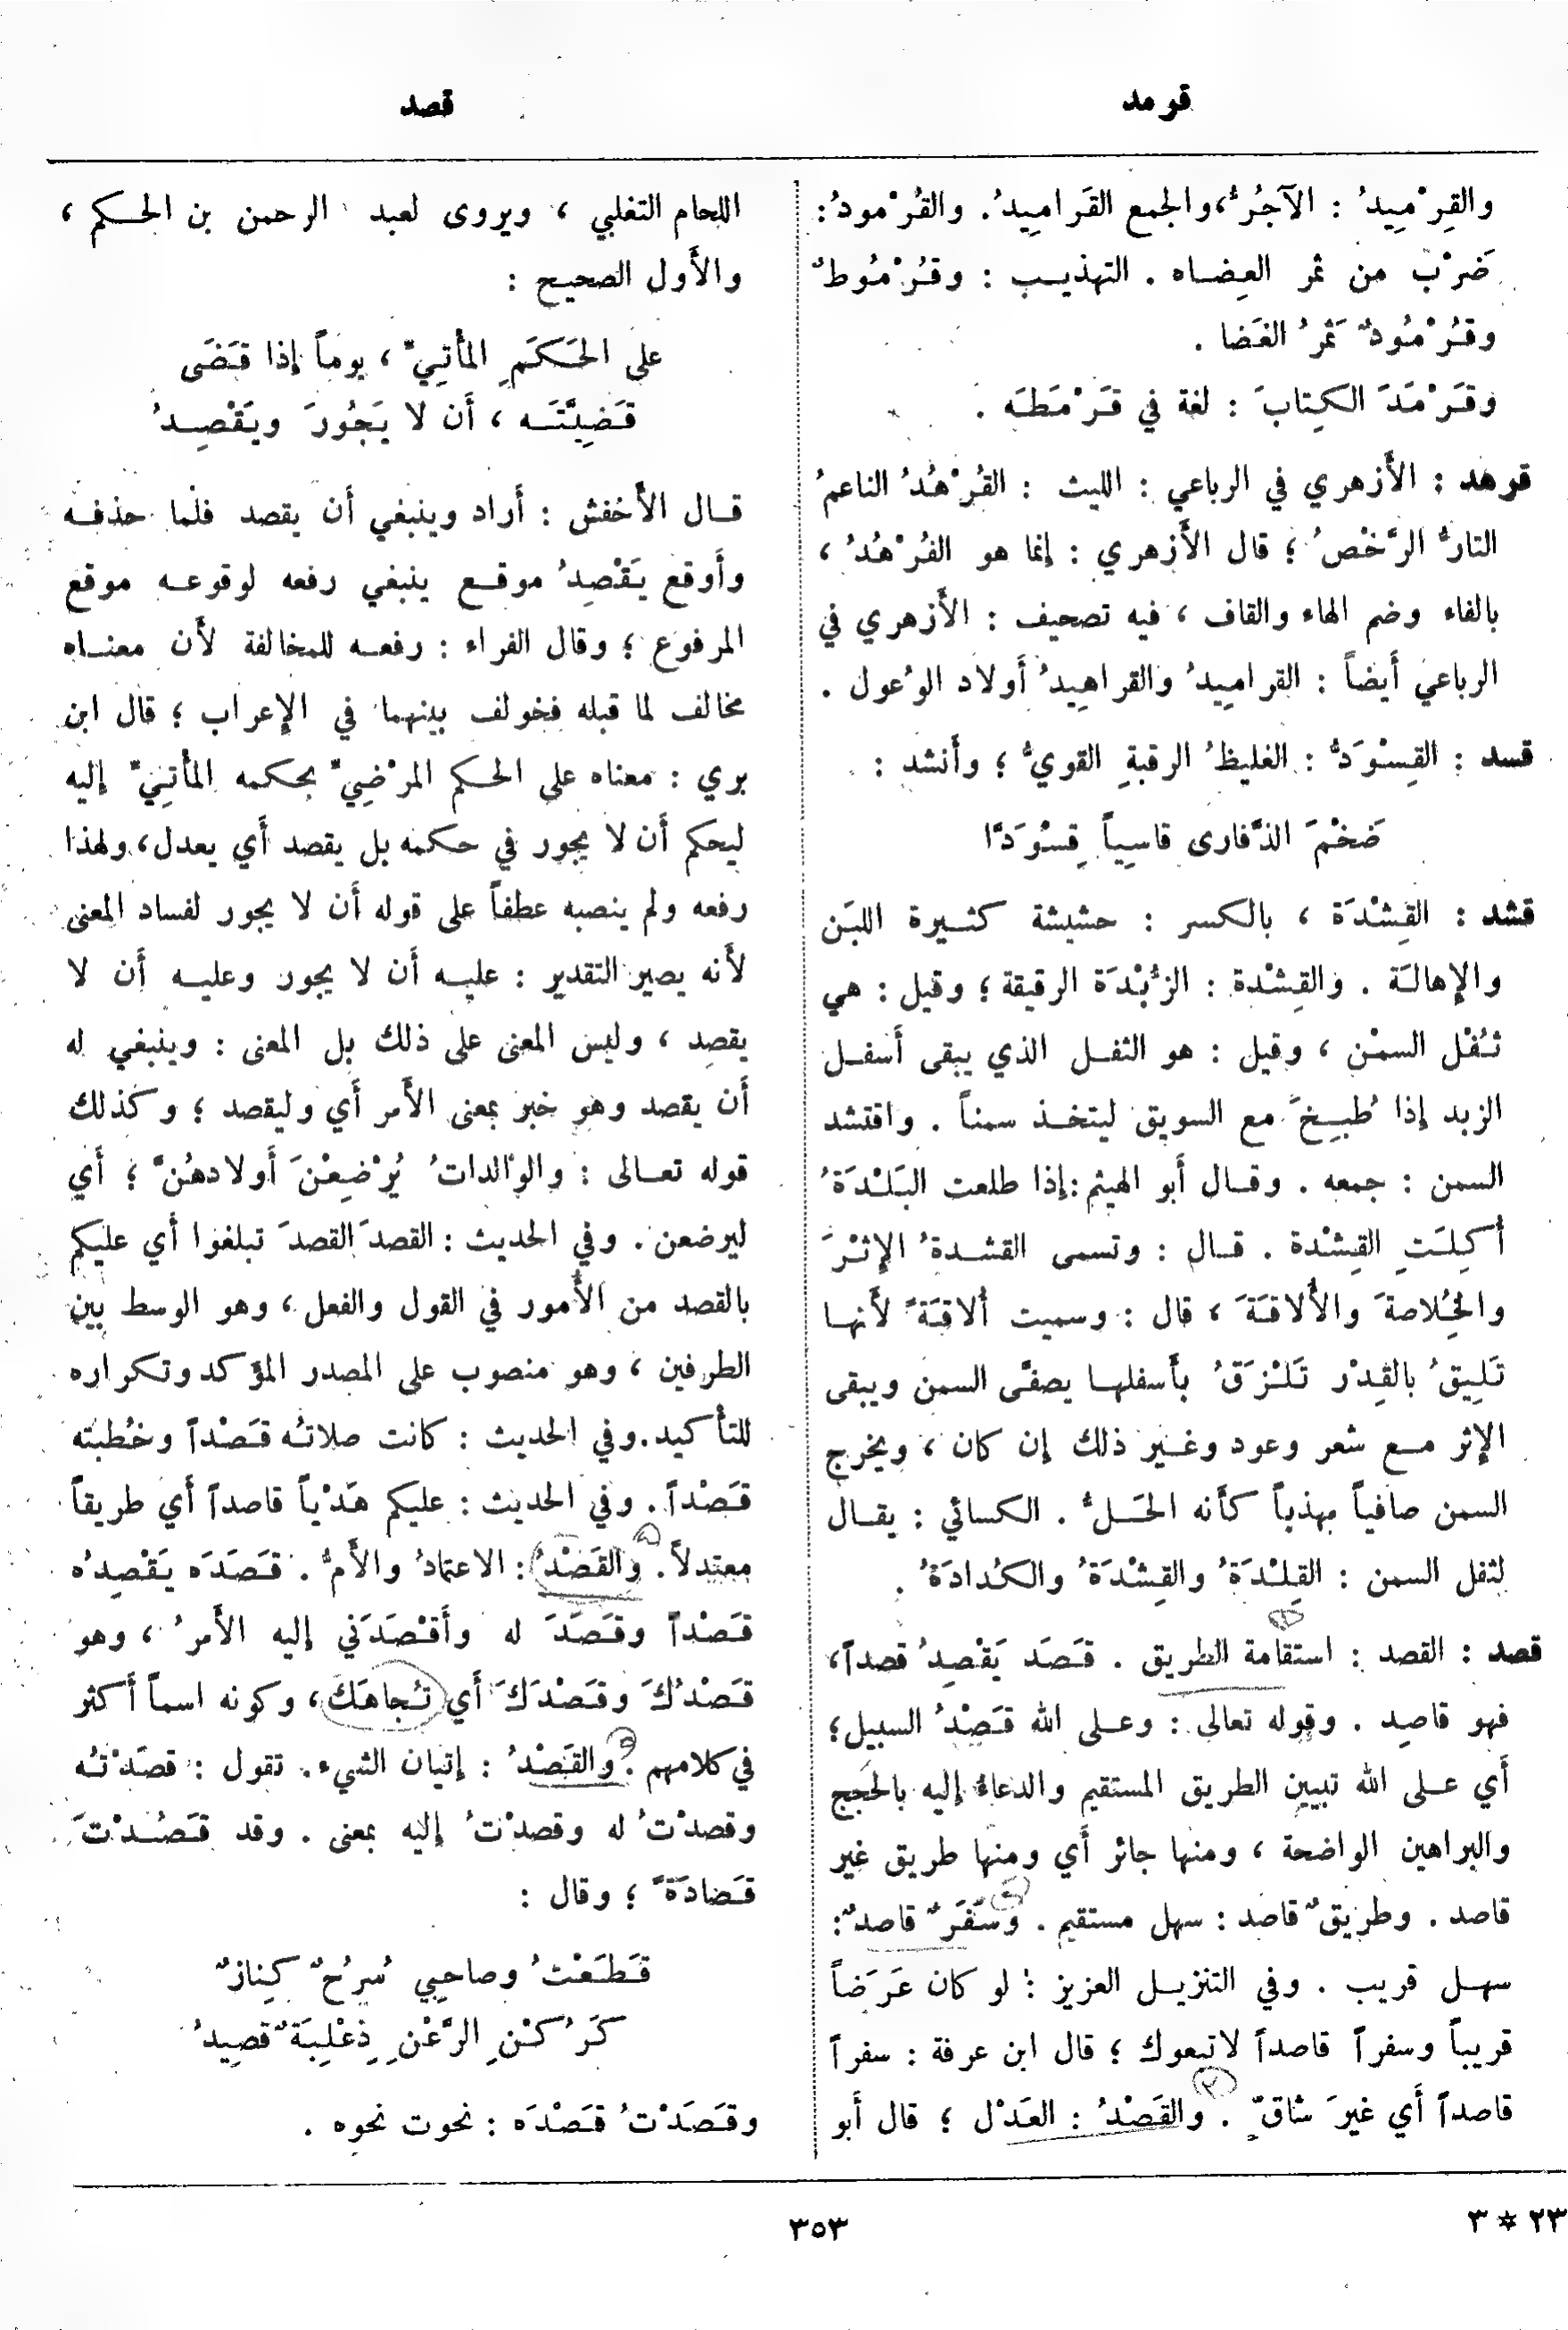 قرمد
قصد
والقِرْمِيدُ : الآجُرُّ، والجمع القَرامِيدُ. والقُرْمودُ :
ضَرْب من ثمر العِضاه . التهذيب : وقُرْمُوطٌ
وقُرْمُودٌ ثَمَرُ الغَضا .
وقَرْمَدَ الكِتابَ : لغة في قَرْمَطَه .
قرهد : الأَزهري في الرباعي : الليث : القُرْهُدُ الناعمُ
التارُّ الرَّخْصُ ؛ قال الأَزهري : إنما هو الفُرْهُدُ ،
بالفاء وضم الهاء والقاف ، فيه تصحيف : الأَزهري في
الرباعي أَيضاً : القرامِيدُ والقراهِيدُ أَولاد الوُعول .
قسد : القِسْوَدُّ : الغليظُ الرقبةِ القويُّ ؛ وأَنشد :
ضَخْمَ الذَّفارى قاسِياً قِسْوَدَّا
قشد : القِشْدَة ، بالكسر : حشيشة كثيرة اللبَن
والإهالَة . والقِشْدة : الزُّبْدَة الرقيقة ؛ وقيل : هي
ثُفْل السمْن ، وقيل : هو الثفل الذي يبقى أَسفل
الزبد إذا طُبِخَ مع السويق ليتخذ سمناً . واقتشد
السمن : جمعه . وقال أَبو الهيثم : إذا طلعت البَلْدَةُ
أُكِلَتِ القِشْدة . قال : وتسمى القشدةُ الإثْرَ
والخُلاصةَ والأُلاقَةَ ، قال : وسميت أُلاقَةً لأَنها
تَلِيقُ بالقِدْر تَلْزَقُ بأَسفلها يصفَّى السمن ويبقى
الإثر مع شعر وعود وغير ذلك إن كان ، ويخرج
السمن صافياً مهذباً كأَنه الحَلُّ . الكسائي : يقال
لثفل السمن : القِلْدَةُ والقِشْدَةُ والكُدادَةُ .
قصد : القصد : استقامة الطريق . قَصَد يَقْصِدُ قصداً،
فهو قاصِد . وقوله تعالى : وعلى الله قَصْدُ السبيل؛
أَي على الله تبيين الطريق المستقيم والدعاءُ إليه بالحُجج
والبراهين الواضحة ، ومنها جائر أَي ومنها طريق غير
قاصد . وطريقٌ قاصد : سهل مستقيم . وسَفَرٌ قاصدٌ :
سهل قريب . وفي التنزيل العزيز : لو كان عَرَضاً
قريباً وسفراً قاصداً لاتبعوك ؛ قال ابن عرفة : سفراً
قاصداً أَي غيرَ شاقٍّ . والقَصْدُ : العَدْل ؛ قال أَبو
اللحام التغلبي ، ويروى لعبد الرحمن بن الحكم ،
والأَول الصحيح :
على الحَكَمِ المأْتِيِّ ، يوماً إذا قَضَى
قَضِيَّتَه ، أَن لا يَجُورَ ويَقْصِدُ
قال الأَخفش : أَراد وينبغي أَن يقصد فلما حذفه
وأَوقع يَقْصِدُ موقع ينبغي رفعه لوقوعه موقع
المرفوع ؛ وقال الفراء : رفعه للمخالفة لأَن معناه
مخالف لما قبله فخولف بينهما في الإعراب ؛ قال ابن
بري : معناه على الحكم المرْضِيِّ بحكمه المأْتِيِّ إليه
ليحكم أَن لا يجور في حكمه بل يقصد أَي يعدل، ولهذا
رفعه ولم ينصبه عطفاً على قوله أَن لا يجور لفساد المعنى
لأَنه يصير التقدير : عليه أَن لا يجور وعليه أَن لا
يقصد ، وليس المعنى على ذلك بل المعنى : وينبغي له
أَن يقصد وهو خبر بمعنى الأَمر أَي وليقصد ؛ وكذلك
قوله تعالى : والوالداتُ يُرْضِعْنَ أَولادهُنَّ ؛ أَي
ليرضعن . وفي الحديث : القصدَ القصدَ تبلغوا أَي عليكم
بالقصد من الأُمور في القول والفعل ، وهو الوسط بين
الطرفين ، وهو منصوب على المصدر المؤكد وتكراره
للتأكيد . وفي الحديث : كانت صلاتُه قَصْداً وخُطبته
قَصْداً . وفي الحديث : عليكم هَدْياً قاصداً أَي طريقاً
معتدلاً . والقَصْدُ : الاعتمادُ والأَمُّ . قَصَدَه يَقْصِدُه
قَصْداً وقَصَدَ له وأَقْصَدَني إليه الأَمرُ ، وهو
قَصْدُكَ وقَصْدَكَ أَي تُجاهَكَ ، وكونه اسماً أَكثر
في كلامهم . والقَصْدُ : إتيان الشيء . تقول : قصَدْتُه
وقصدْتُ له وقصدْتُ إليه بمعنى . وقد قَصُدْتَ
قَصادَةً ؛ وقال :
قَطَعْتُ وصاحِبي سُرُحٌ كِنازٌ
كَرُكْنِ الرَّعْنِ ذِعْلِبَةٌ قصِيدُ
وقَصَدْتُ قَصْدَه : نحوت نحوه .
٣٥٣
٢٣ * ٣